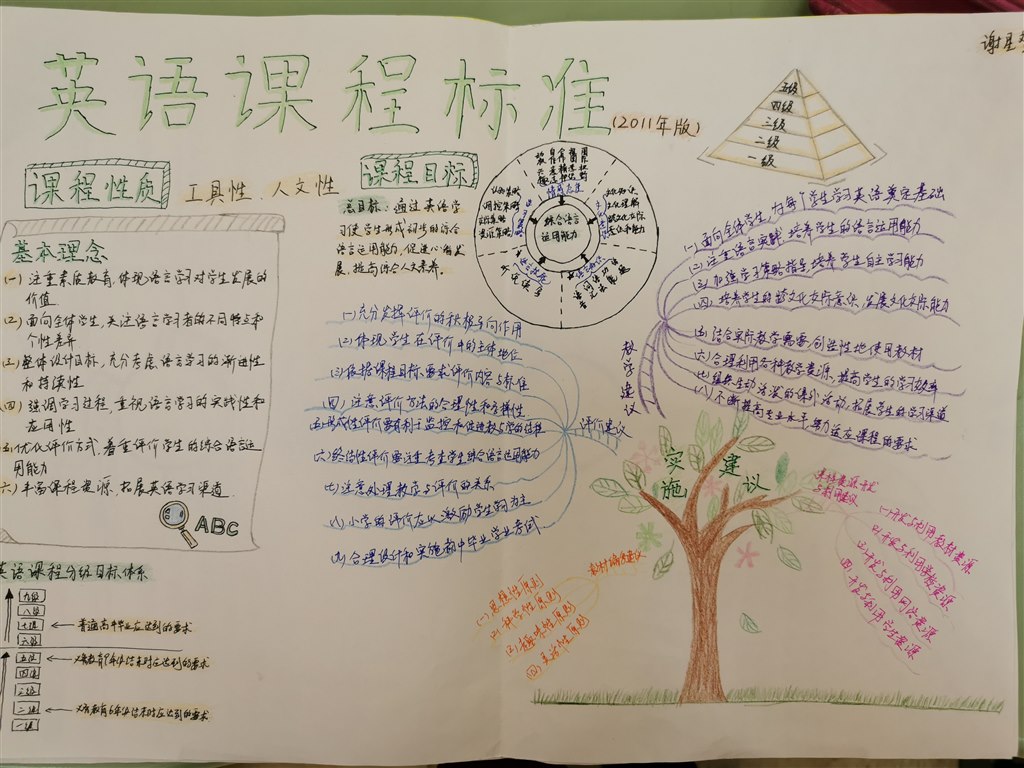 英语课程标准
(2011年版)
谢星
五级
四级
三级
二级
一级
课程性质
工具性、人文性
课程目标
总目标：通过英语学
习使学生形成初步的综合
语言运用能力，促进心智发
展，提高综合人文素养。
综合语言
运用能力
情感态度
基本理念
(一) 注重素质教育，体现语言学习对学生发展的
价值
(二) 面向全体学生，关注语言学习者的不同特点和
个性差异
(三) 整体设计目标，充分考虑语言学习的渐进性
和持续性
(四) 强调学习过程，重视语言学习的实践性和
应用性
(五) 优化评价方式，着重评价学生的综合语言运
用能力
(六) 丰富课程资源，拓展英语学习渠道
ABC
英语课程分级目标体系
九级
八级
七级
六级
普通高中毕业应达到的要求
五级
义务教育9年级结束时应达到的要求
四级
三级
二级
义务教育6年级结束时应达到的要求
一级
评价建议
(一) 充分发挥评价的积极导向作用
(二) 体现学生在评价中的主体地位
(三) 依据课程目标要求评价内容与标准
(四) 注意评价方法的合理性和多样性
(五) 形成性评价要有利于监控和促进教与学的过程
(六) 终结性评价要注重考查学生综合语言运用能力
(七) 注意处理教学与评价的关系
(八) 小学的评价应以激励学生学习为主
(九) 合理设计和实施初中毕业学业考试
教学建议
(一) 面向全体学生，为每个学生学习英语奠定基础
(二) 注重语言实践，培养学生的语言运用能力
(三) 加强学习策略指导，培养学生自主学习能力
(四) 培养学生的跨文化交际意识，发展文化交际能力
(五) 结合实际教学需要，创造性地使用教材
(六) 合理利用各种教学资源，提高学生的学习效率
(七) 组织生动活泼的课外活动，拓展学生的学习渠道
(八) 不断提高专业水平，努力适应课程的要求
实施
建议
教材编写建议
(一) 思想性原则
(二) 科学性原则
(三) 趣味性原则
(四) 灵活性原则
(一) 开发与利用教材资源
(二) 开发与利用学校资源
(三) 开发与利用网络资源
(四) 开发与利用学生资源